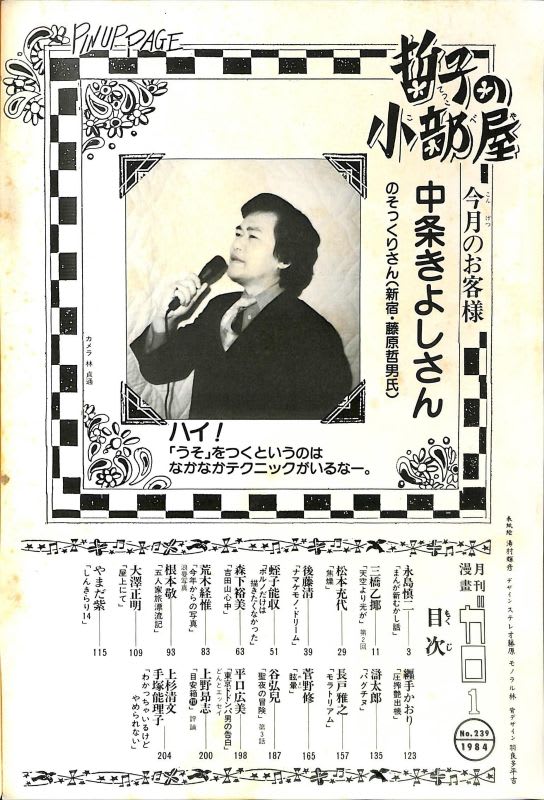 PIN UP PAGE
哲子の
小部屋
てつこ
こべや
今月のお客様
こんげつ
中条きよしさん
のそっくりさん(新宿・藤原哲男氏)
カメラ 林 貞通
ハイ!
「うそ」をつくというのは
なかなかテクニックがいるなー。
月刊漫畫ガロ 1
No.239
1984
目次
もくじ
永島慎二
「まんが新むかし話」
3
三橋乙揶
「天空より光が」第2回
11
松本充代
「焦燥」
29
後藤清
「ナマケモノ・ドリーム」
39
蛭子能収
「ポルノだけは描きたくなかった」
51
森下裕美
「吉田山心中」
63
荒木経惟
「今年からの写真」
浪曼写真
83
根本敬
「五人家族漂流記」
93
大澤正明
「屋上にて」
109
やまだ紫
「しんきらり14」
115
瀬手かおり
「圧搾艶出機」
123
滸太郎
「バグチヌ」
135
長戸雅之
「モラトリアム」
157
菅野修
「眩暈」
165
谷弘兒
「聖夜の冒険」第3話
187
平口広美
「東京でドンパ男の告白」
どんとエッセイ
198
上野昂志
「目安箱」評論
200
上杉清文
手塚能理子
「わかっちゃいるけどやめられない」
204
表紙絵 湯村輝彦 デザイン ステレオ藤原 モノラル林 背デザイン 羽良多平吉